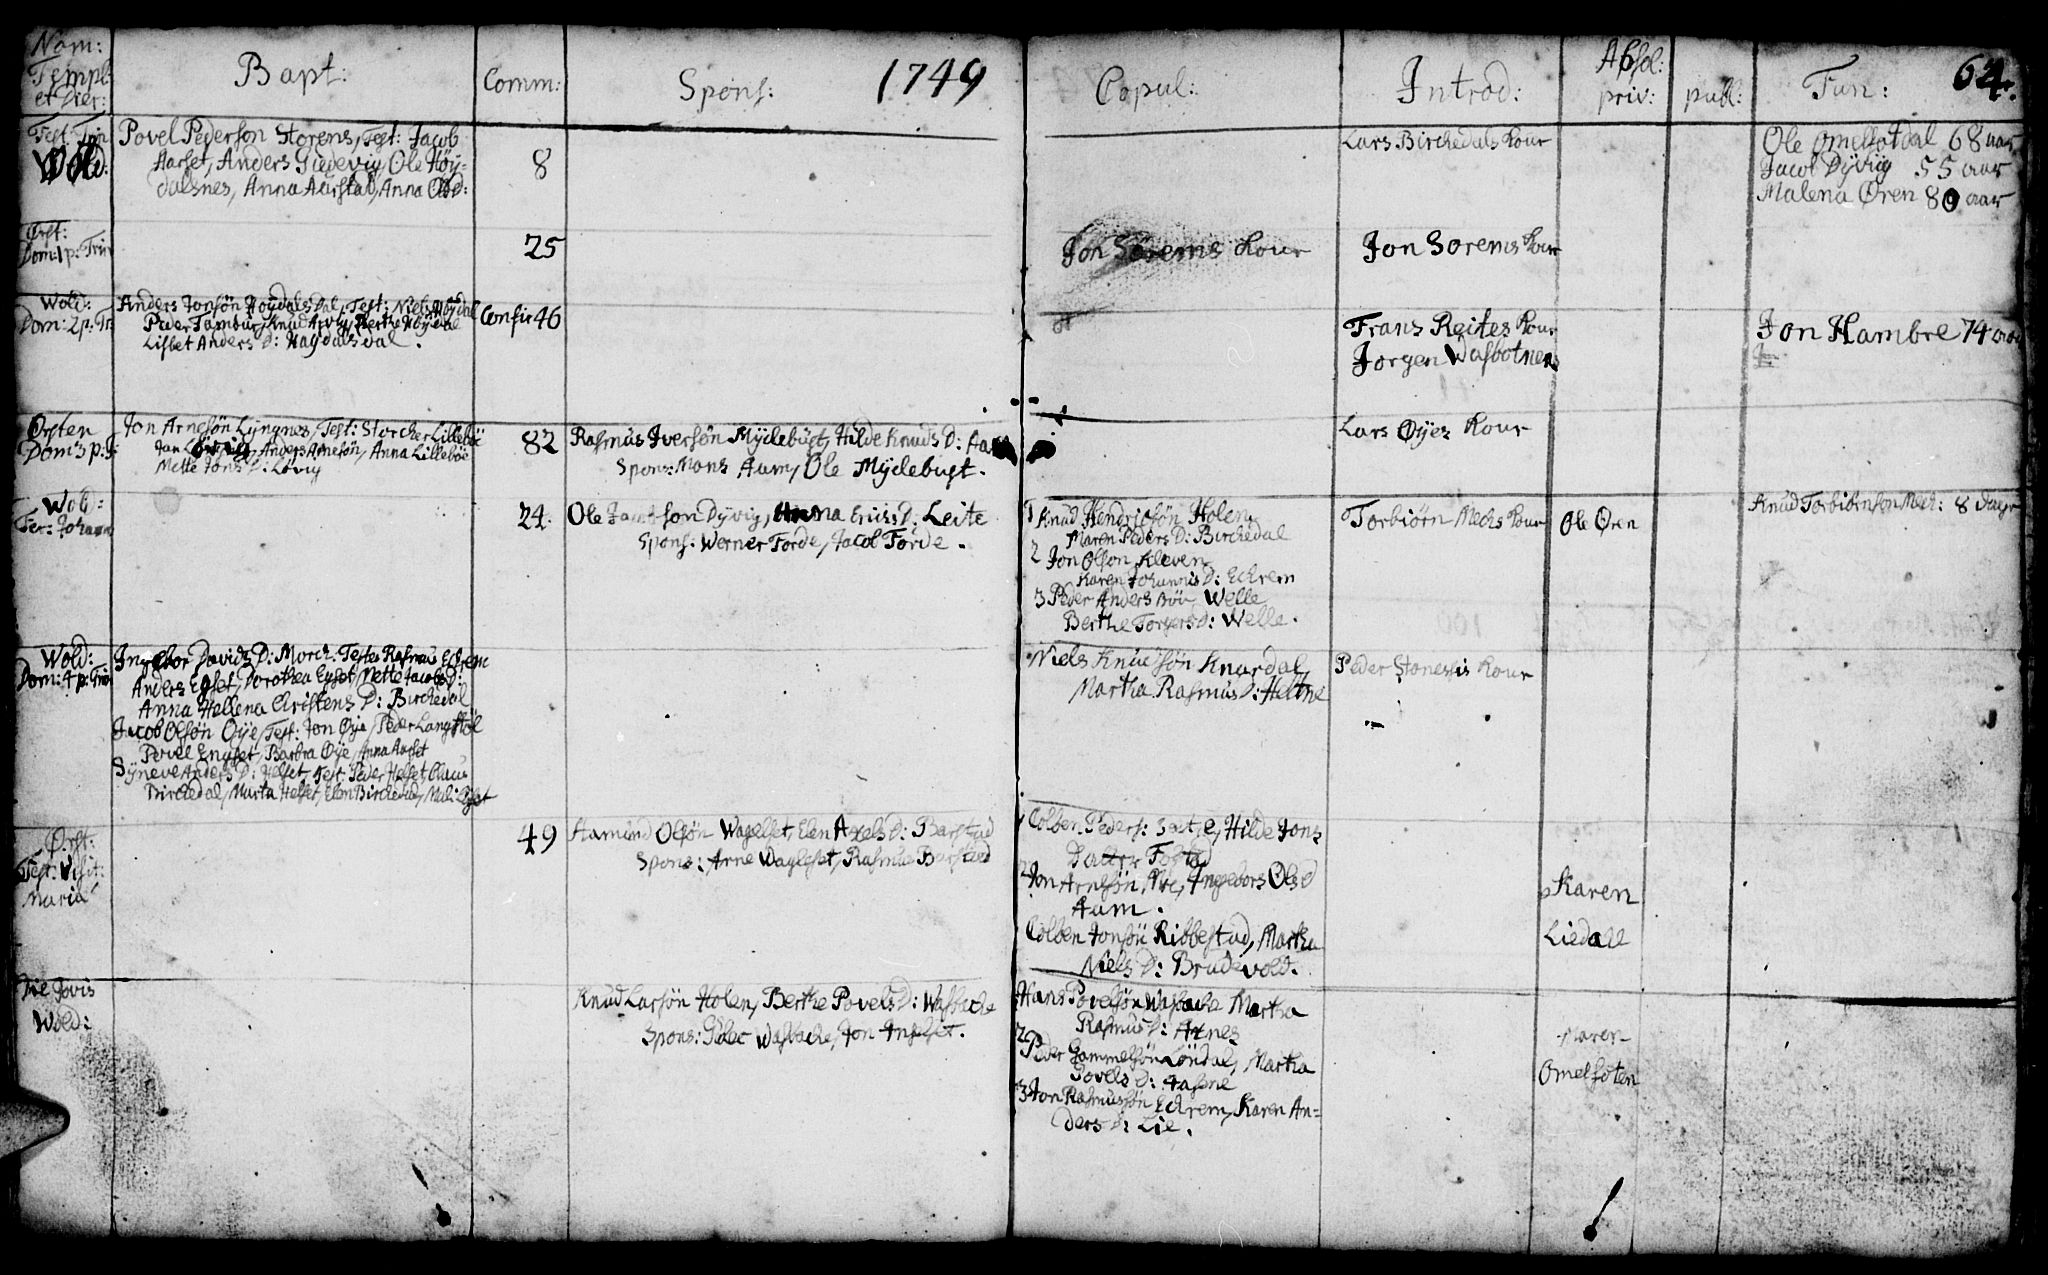 Nom:
Templ:
et Dier:
Bapt:
Comm:
Spons:
1749
Copul:
Introd:
Absol:
priv:
publ:
Fun:
64.
Fest: Trin
Wold:
Povel Pederson Storens, Test: Jacob
Aarset, Anders Giedevig, Ole Höy-
dalsnes, Anna Aarstad, Anna
8
Lars Birchedals Kour
Ole Omelfotdal 68 aar
Jacob Dyvig 55 aar
Malena Øren 80 aar
Ørst:
Dom: 1 p: Trin
25
Jon Sörems Kour
Jon Sorems Kour
Wold:
Dom: 2 p: Tr:
Anders Jonsön Höydals Dal, Test: Niels Höydal
Peder Tambur, Knud Berthe
Lisbet Anders D: Haydalsdal.
Confir 46
Frans Reites Kour
Jorgen Wasbotnen
Jon Hambre 74 aar
Ørsten
Dom 3 p:
Jon Arnesön Lyngnes, Test: Storcher Lilleböe
Jon Anders Arnesön, Anna Lilleböe
Mette Jons D: Lövig
82
Rasmus Iversön Myclebust, Hilde Knuds D:
Spons: Mons Aam, Ole Myclebust.
Lars Øyes Kour
Wold:
Fer: Johann
24.
Ole Jambson Dyvig, Anna Erics D: Leite
Spons: Werner Forde, Jacob Forde.
1 Knud Hendricsön Holen,
Maren Peders D: Birchedal
2 Jon Olson Kleven
Karen Johannis D: Echrem
3 Peder Anders Welle
Berthe Torgers D: Welle.
Torbiörn Mechs Kour
Ole Øren
Knud Torbiörnson Mech: 8 dage
Wold:
Dom: 4 p: Trin
Ingebor Davids D: Morch. Testes Rasmus Echrem
Anders Egset, Dorothea Egset, Mette Jacobs D:
Anna Hellena Christens D: Birchedal
Jacob Olsön Øye, Test: Jon Øye, Peder Langstöl
Povel Engset, Barbra Øye, Anna Aarset
Syneve Anders D: Helset, Test: Peder Helset, Claus
Birchedal, Marta Helset, Elen Birchedal,
Niels Knudsön Knardal,
Martha Rasmus D: Heltne
Peder Stonessis Kour
Ørst:
Fest: Visit:
Mariæ
49
Hamund Olsön Wagelset, Elen Axels D: Barstad
Spons: Arne Wagleset, Rasmus Barstad
Colben Peders: Sæt, Hilde Jons
Datter Folstad
2 Jon Arnesön, Ingebors Ols D
Aam.
Colben Jonsön Ribbestad, Martha
Niels D: Brudevold.
Karen
Liedall
Die Jovis
Wold:
Knud Larsön Holen, Berthe Povels D: Wasbache
Spons: Wasbache, Jon Ingset.
Hans Povelsön Wasbache Martha
Rasmus D: Aznes
2 Peder Gammelsön Löndal, Martha
Povels D:
3 Jon Rasmussön Echrem, Karen An-
ders D: Lie.
Maren
Omelfoten